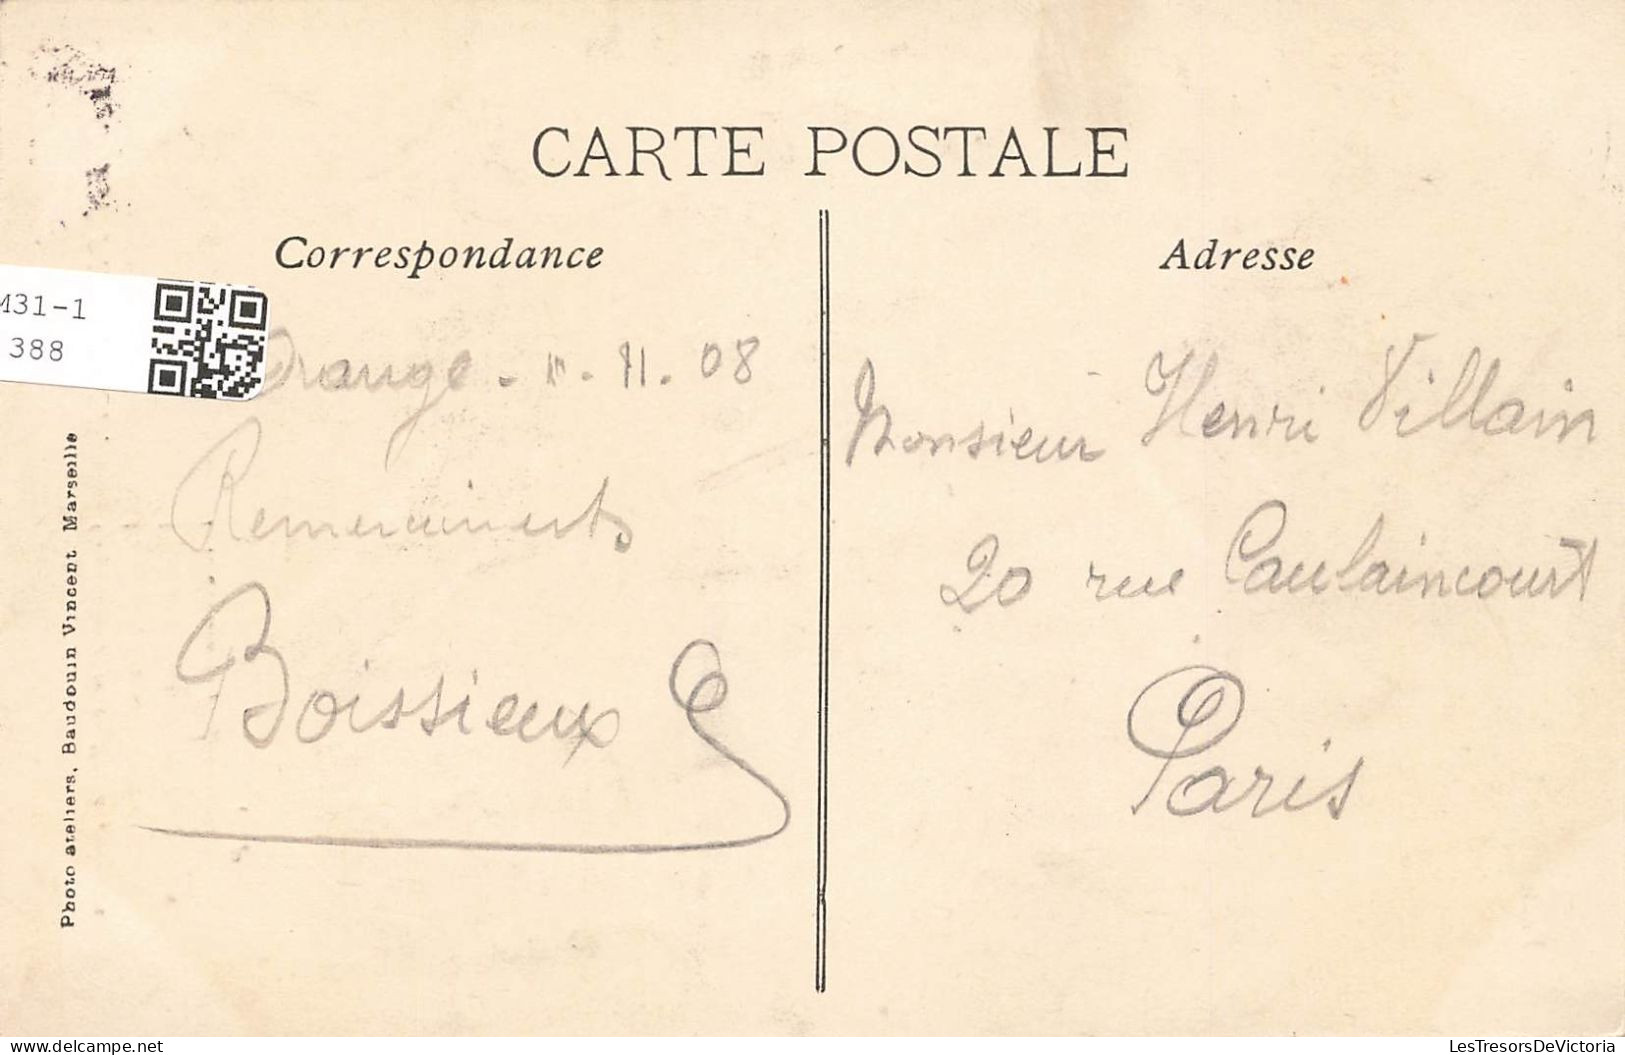 CARTE POSTALE
Correspondance
Adresse
M31-1
388
Orange - 11. 08
Remerciments
Boissieux
Monsieur Henri Villain
20 rue Caulaincourt
Paris
Photo ateliers, Baudouin Vincent Marseille
LesTresorsDeVictoria